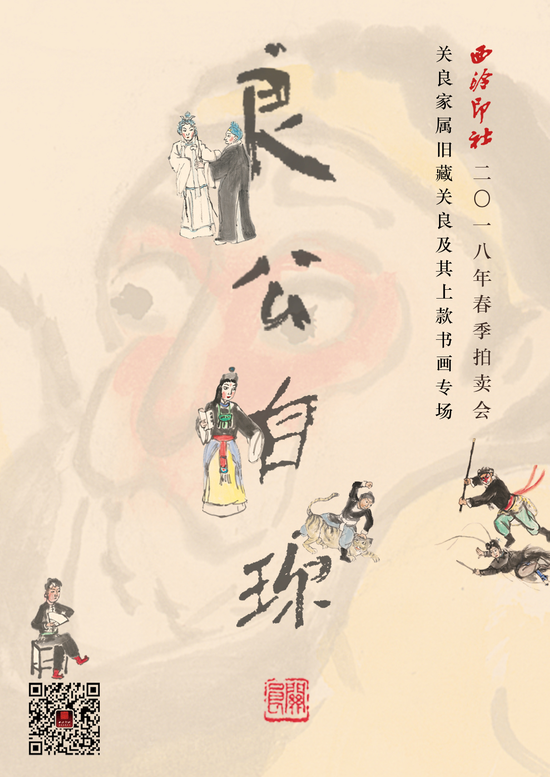 西泠印社 二〇一八年春季拍卖会
关良家属旧藏关良及其上款书画专场
良公自珎
關良